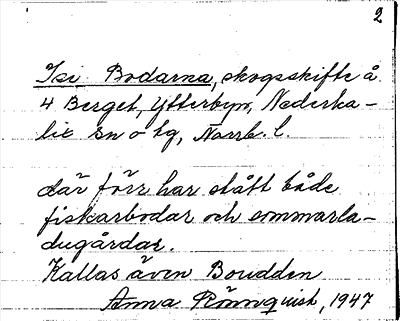 2
Isi Bodarna, skogsskifte å
4 Berget, Ytterbyn, Nederka-
lix sn o tg, Norrb. l.
där förr har stått både
fiskarbodar och sommarla-
dugårdar.
Kallas även Boudden
Anna Rönnquist, 1947